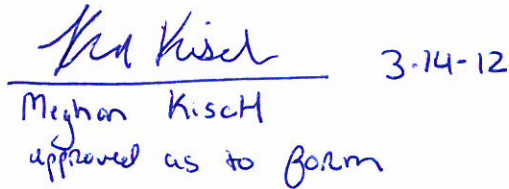 Kisch 3-14-12
Meghan Kisch
approved as to form